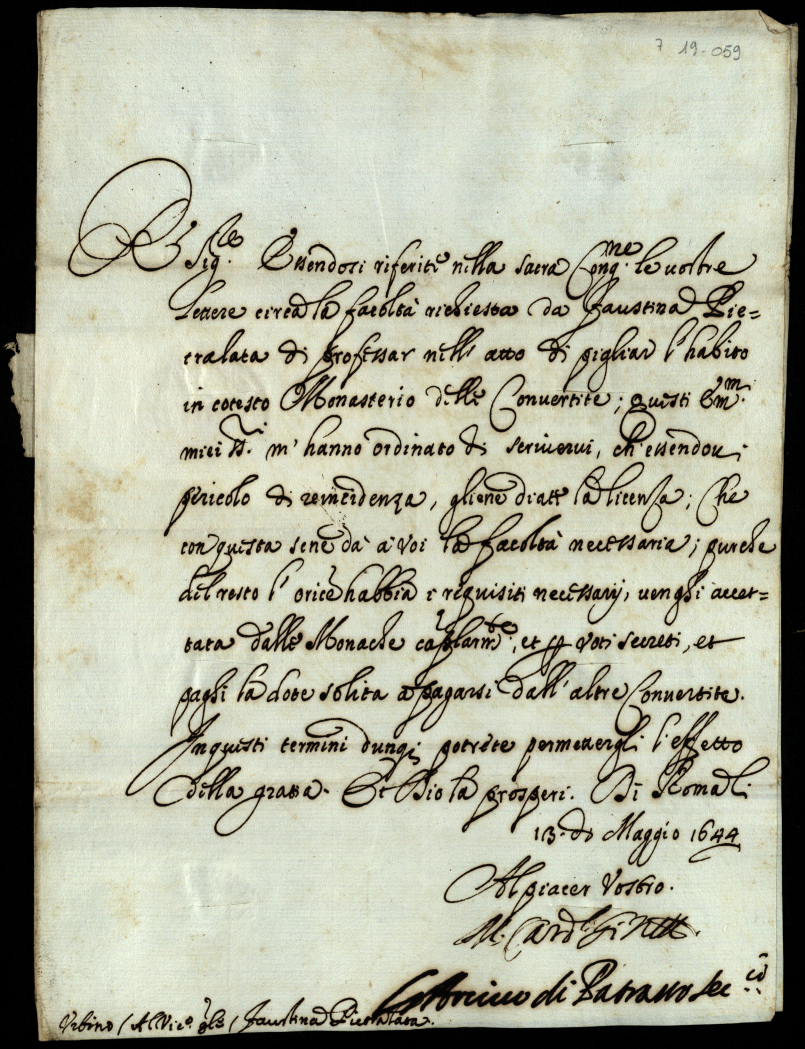 7 19-059
R. Sig.re Essendosi riferite nella sacra Cong.ne le vostre
lettere circa la facoltà richiesta da Faustina Pie=
tralata di professar nell' atto di pigliar l' habito
in cotesto Monasterio delle Convertite; questi Em.mi
miei SS.ri m' hanno ordinato di scrivervi, ch' essendovi
pericolo di reincidenza, gliene diate la licenza; Che
con questa sene dà à voi la facoltà necessaria; purche
del resto l' orãce habbia i requisiti necessarij, venghi accet=
tata dalle Monache caplarm.te, et p voti secreti, et
paghi la dote solita a pagarsi dall' altre Convertite.
In questi termini dunq; potrete permetergli l' effetto
della grazia. Et Dio la prosperi. Di Roma li
13. di Maggio 1644
Al piacer Vostro.
M. Card.l Ginetti.
di
Urbino (Al Vic.o gle) Faustina Pietralata.